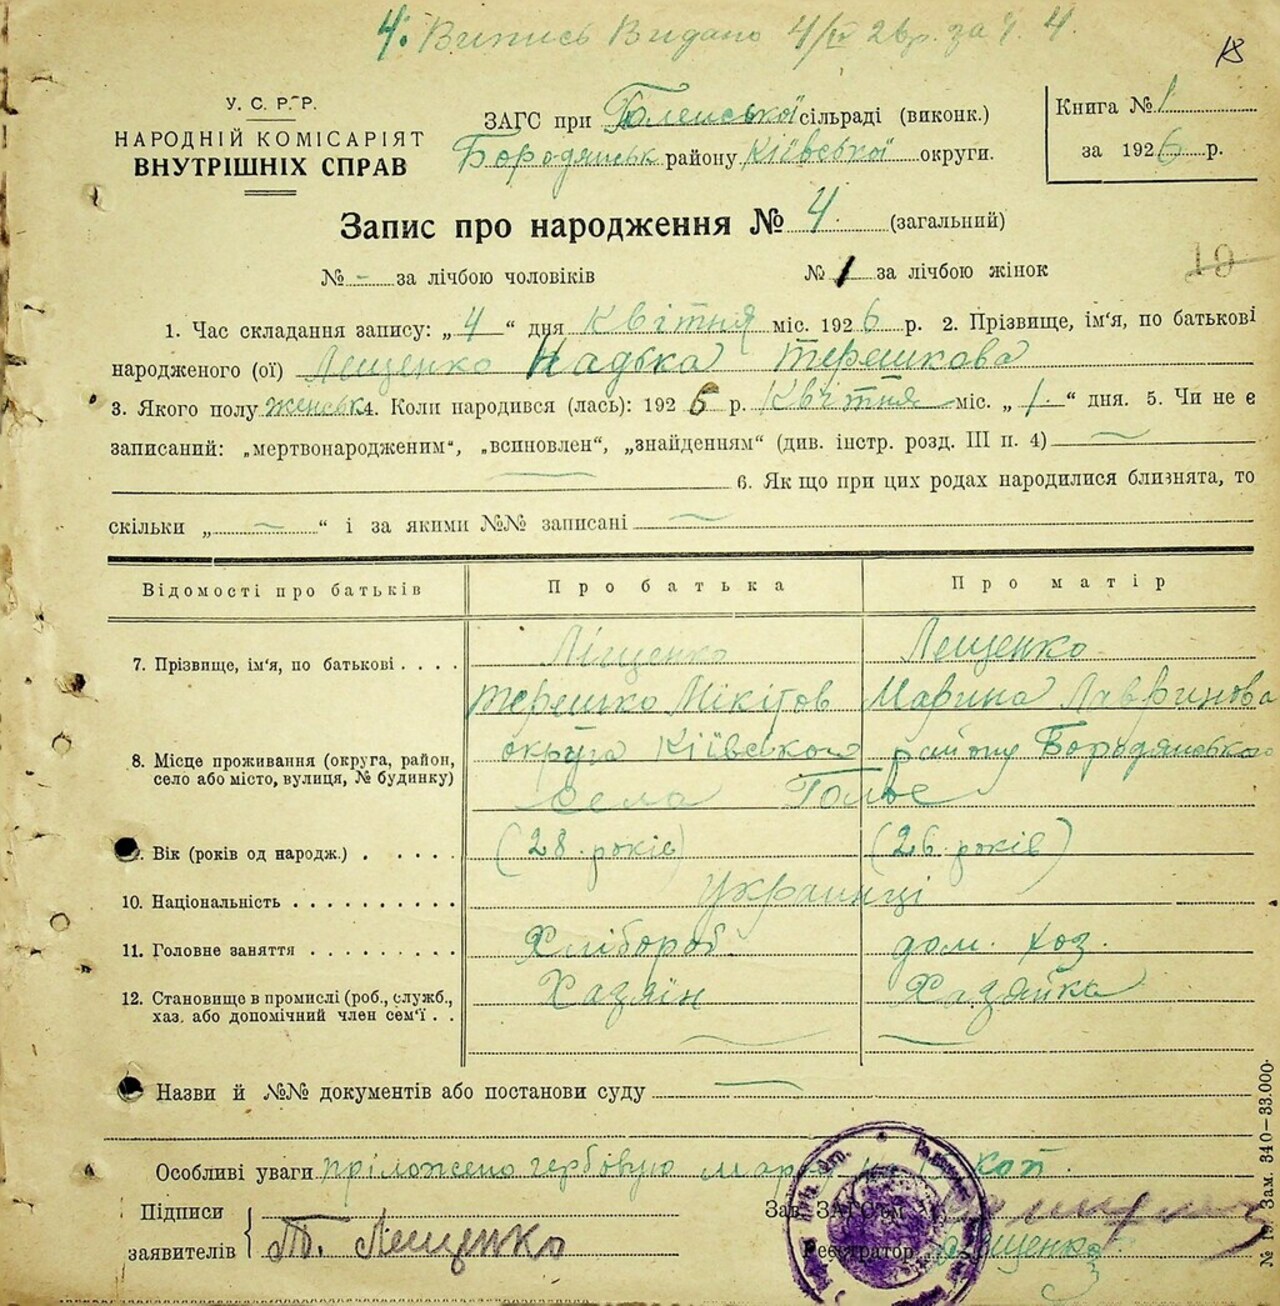 4. Випись Видано 4/IV 26р. за ч. 4.
18
У. С. Р. Р.
НАРОДНІЙ КОМІСАРІЯТ
ВНУТРІШНІХ СПРАВ
ЗАГС при Голенської сільраді (виконк.)
Бородянськ району Київської округи.
Книга № 1
за 1926 р.
Запис про народження № 4. (загальний)
№ - за лічбою чоловіків № 1 за лічбою жінок
19
1. Час складання запису: „4“ дня Квітня міс. 1926 р. 2. Прізвище, ім'я, по батькові
народженого (ої) Лещенко Надька Терешкова
3. Якого полу женськ 4. Коли народився (лась): 1926 р. Квітня міс. „1.“ дня. 5. Чи не є
записаний: „мертвонародженим“, „всиновлен“, „знайденням“ (див. інстр. розд. III п. 4)
6. Як що при цих родах народилися близнята, то
скільки „ “ і за якими №№ записані
Відомості про батьків Про батька Про матір
7. Прізвище, ім'я, по батькові . . . . Ліщенко Лещенко
Терешко Мікітов Марина Лавринова
8. Місце проживання (округа, район, округа Київського району Бородянського
село або місто, вулиця, № будинку) села
9. Вік (років од народж.) . . . . . (28. років) (26. років)
10. Національність . . . . . . . . . . Украинці
11. Головне заняття . . . . . . . . . Хлібороб. дом. хоз.
12. Становище в промислі (роб., служб., Хазяїн Хазяйка
хаз. або допомічний член сем'ї . .
Назви й №№ документів або постанови суду
Особливі уваги пріложено гербовую марк коп.
Підписи
заявителів Т. Лещенко
Зав. ЗАГС'ом
Реєстратор Лещенко
№ 19. Зам. 340—33.000.